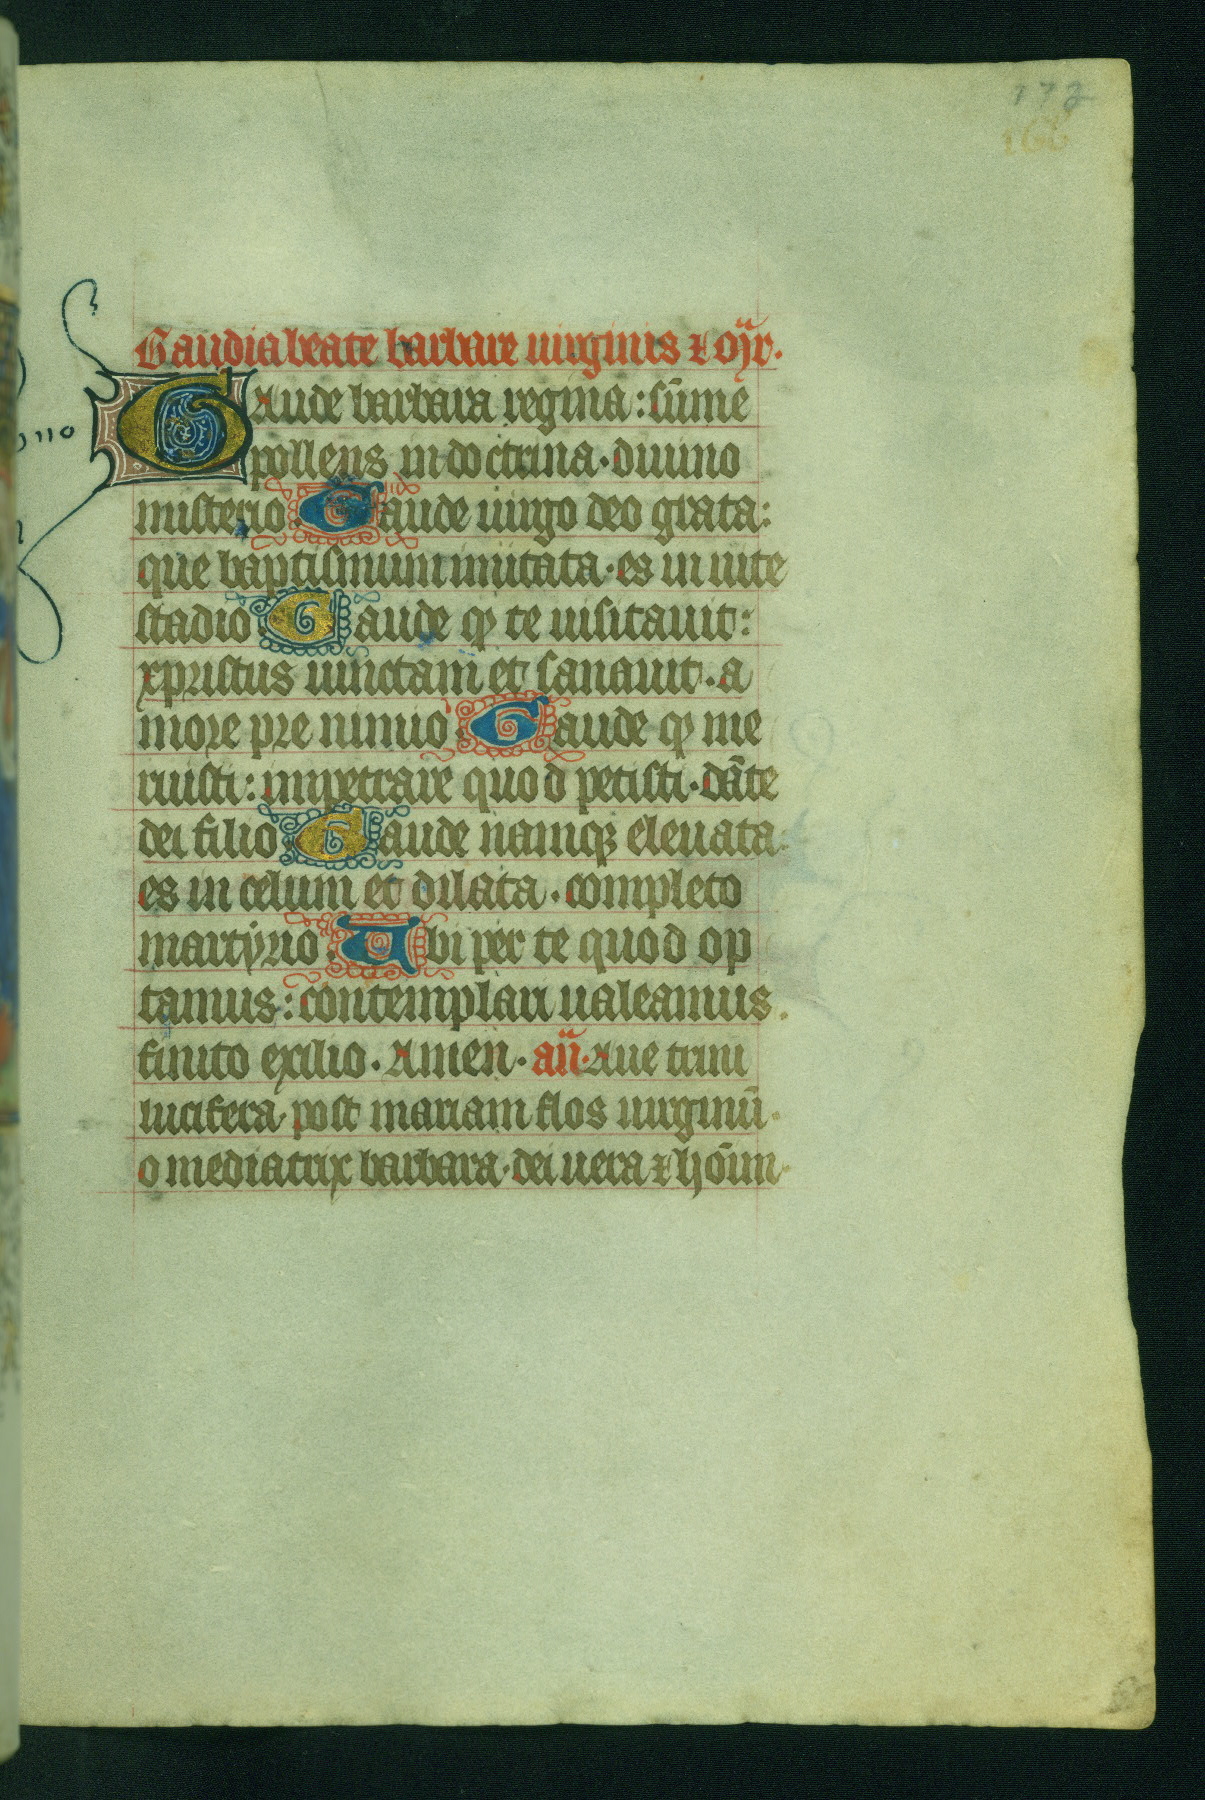 173
166
Gaudia beate barbare uirginis ⁊ m̄r̄.
Gaude barbara regina: sūme
pollens in doctrina · diuino
misterio. Gaude uirgo deo grata:
que baptismum imitata · es in uite
stadio. Gaude ꝙ te uisitauit:
xpristus uinctam et sanauit · a
more pre nimio. Gaude ꝙ me
ruisti: impetrare quod petisti · dāte
dei filio. Gaude namqꝫ eleuata:
es in celum et dilata · completo
martyrio. Ubi per te quod op
tamus: contemplari ualeamus.
finito exilio. Amen. añ. Aue trini
lucifera post mariam flos uirginū.
o mediatrix barbara · dei uera ⁊ hoīm.